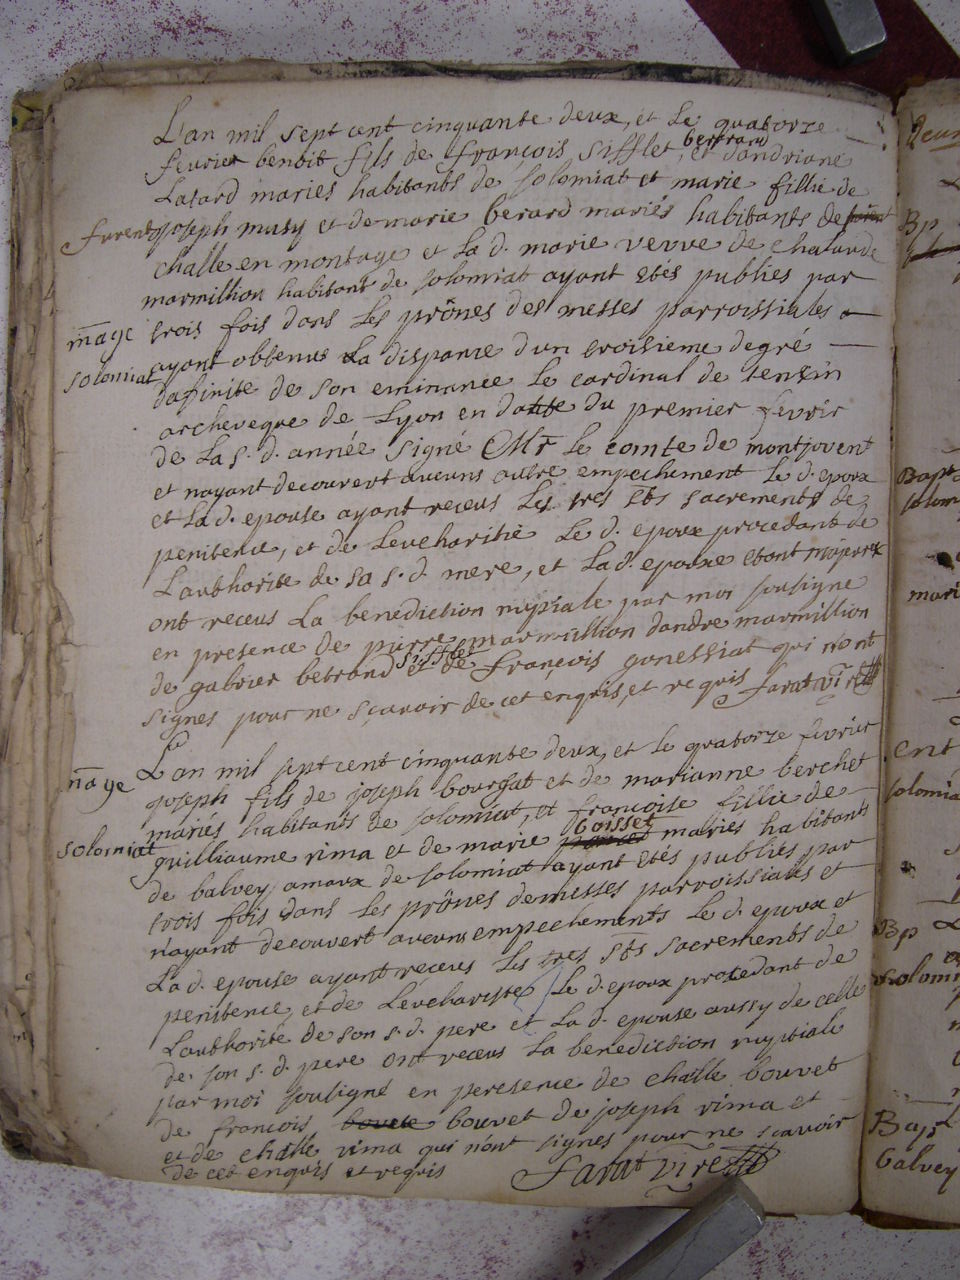 L'an mil sept cent cinquante deux, et le quatorze
fevrier benoit fils de françois Sifflet, bertrand et dandriane
Latard mariés habitants de solomiat et marie fillie de
furent joseph musy et de marie berard mariés habitants de
challe en montage et la d. marie vevve de chalarde
marmillion habitant de solomiat ayant etés publies par
m̄age trois fois dans les prônes des messes parroissiales
solomiat ayant obtenus la dispance dun troisieme degré
dafinite de son eminance le cardinal de tensin
archeveque de Lyon en datte du premier fevrir
de la s. d. année signé Mr le comte de montjovent
et nayant decouvert aucuns autre empechement le d. epoux
et la d. epouse ayant receus les tres sts sacrements de
penitence, et de Leucharitie le d. epoux procedant de
Lauthorite de sa s. d. mere, et la d. epouxe etant majeure
ont receus la benediction nuptiale par moi souligne
en presence de pierre marmillion dandre marmillion
de gabrier betrand sifflet et de françois gonessiat qui n'ont
signes pour ne sçavoir de cet enquis, et requis farat vire
m̄age L'an mil sept cent cinquante deux, et le quatorze fevrier
joseph fils de joseph bourgat et de marianne berchet
mariés habitants de solomiat, et françoise fillie de
solomiat guilliaume rima et de marie boisset mariés habitants
de balvey amaux de solomiat ayant etés publies par
trois fois dans les prônes demesses parroissiales et
n'ayant decouvert aucuns empechements le d. epoux et
la d. epouse ayant receus les tres sts sacrements de
penitence, et de Leucharistie le d. epoux procedant de
Lauthorité de son s. d. pere et la d. epouse aussy de celle
de son s. d. pere ont receus la benediction nuptiale
par moi souligné en peresence de challe bouvet
de françois bouvet de joseph rima et
et de challe rima qui n'ont signes pour ne scavoir
de cet enquis et requis farat vire